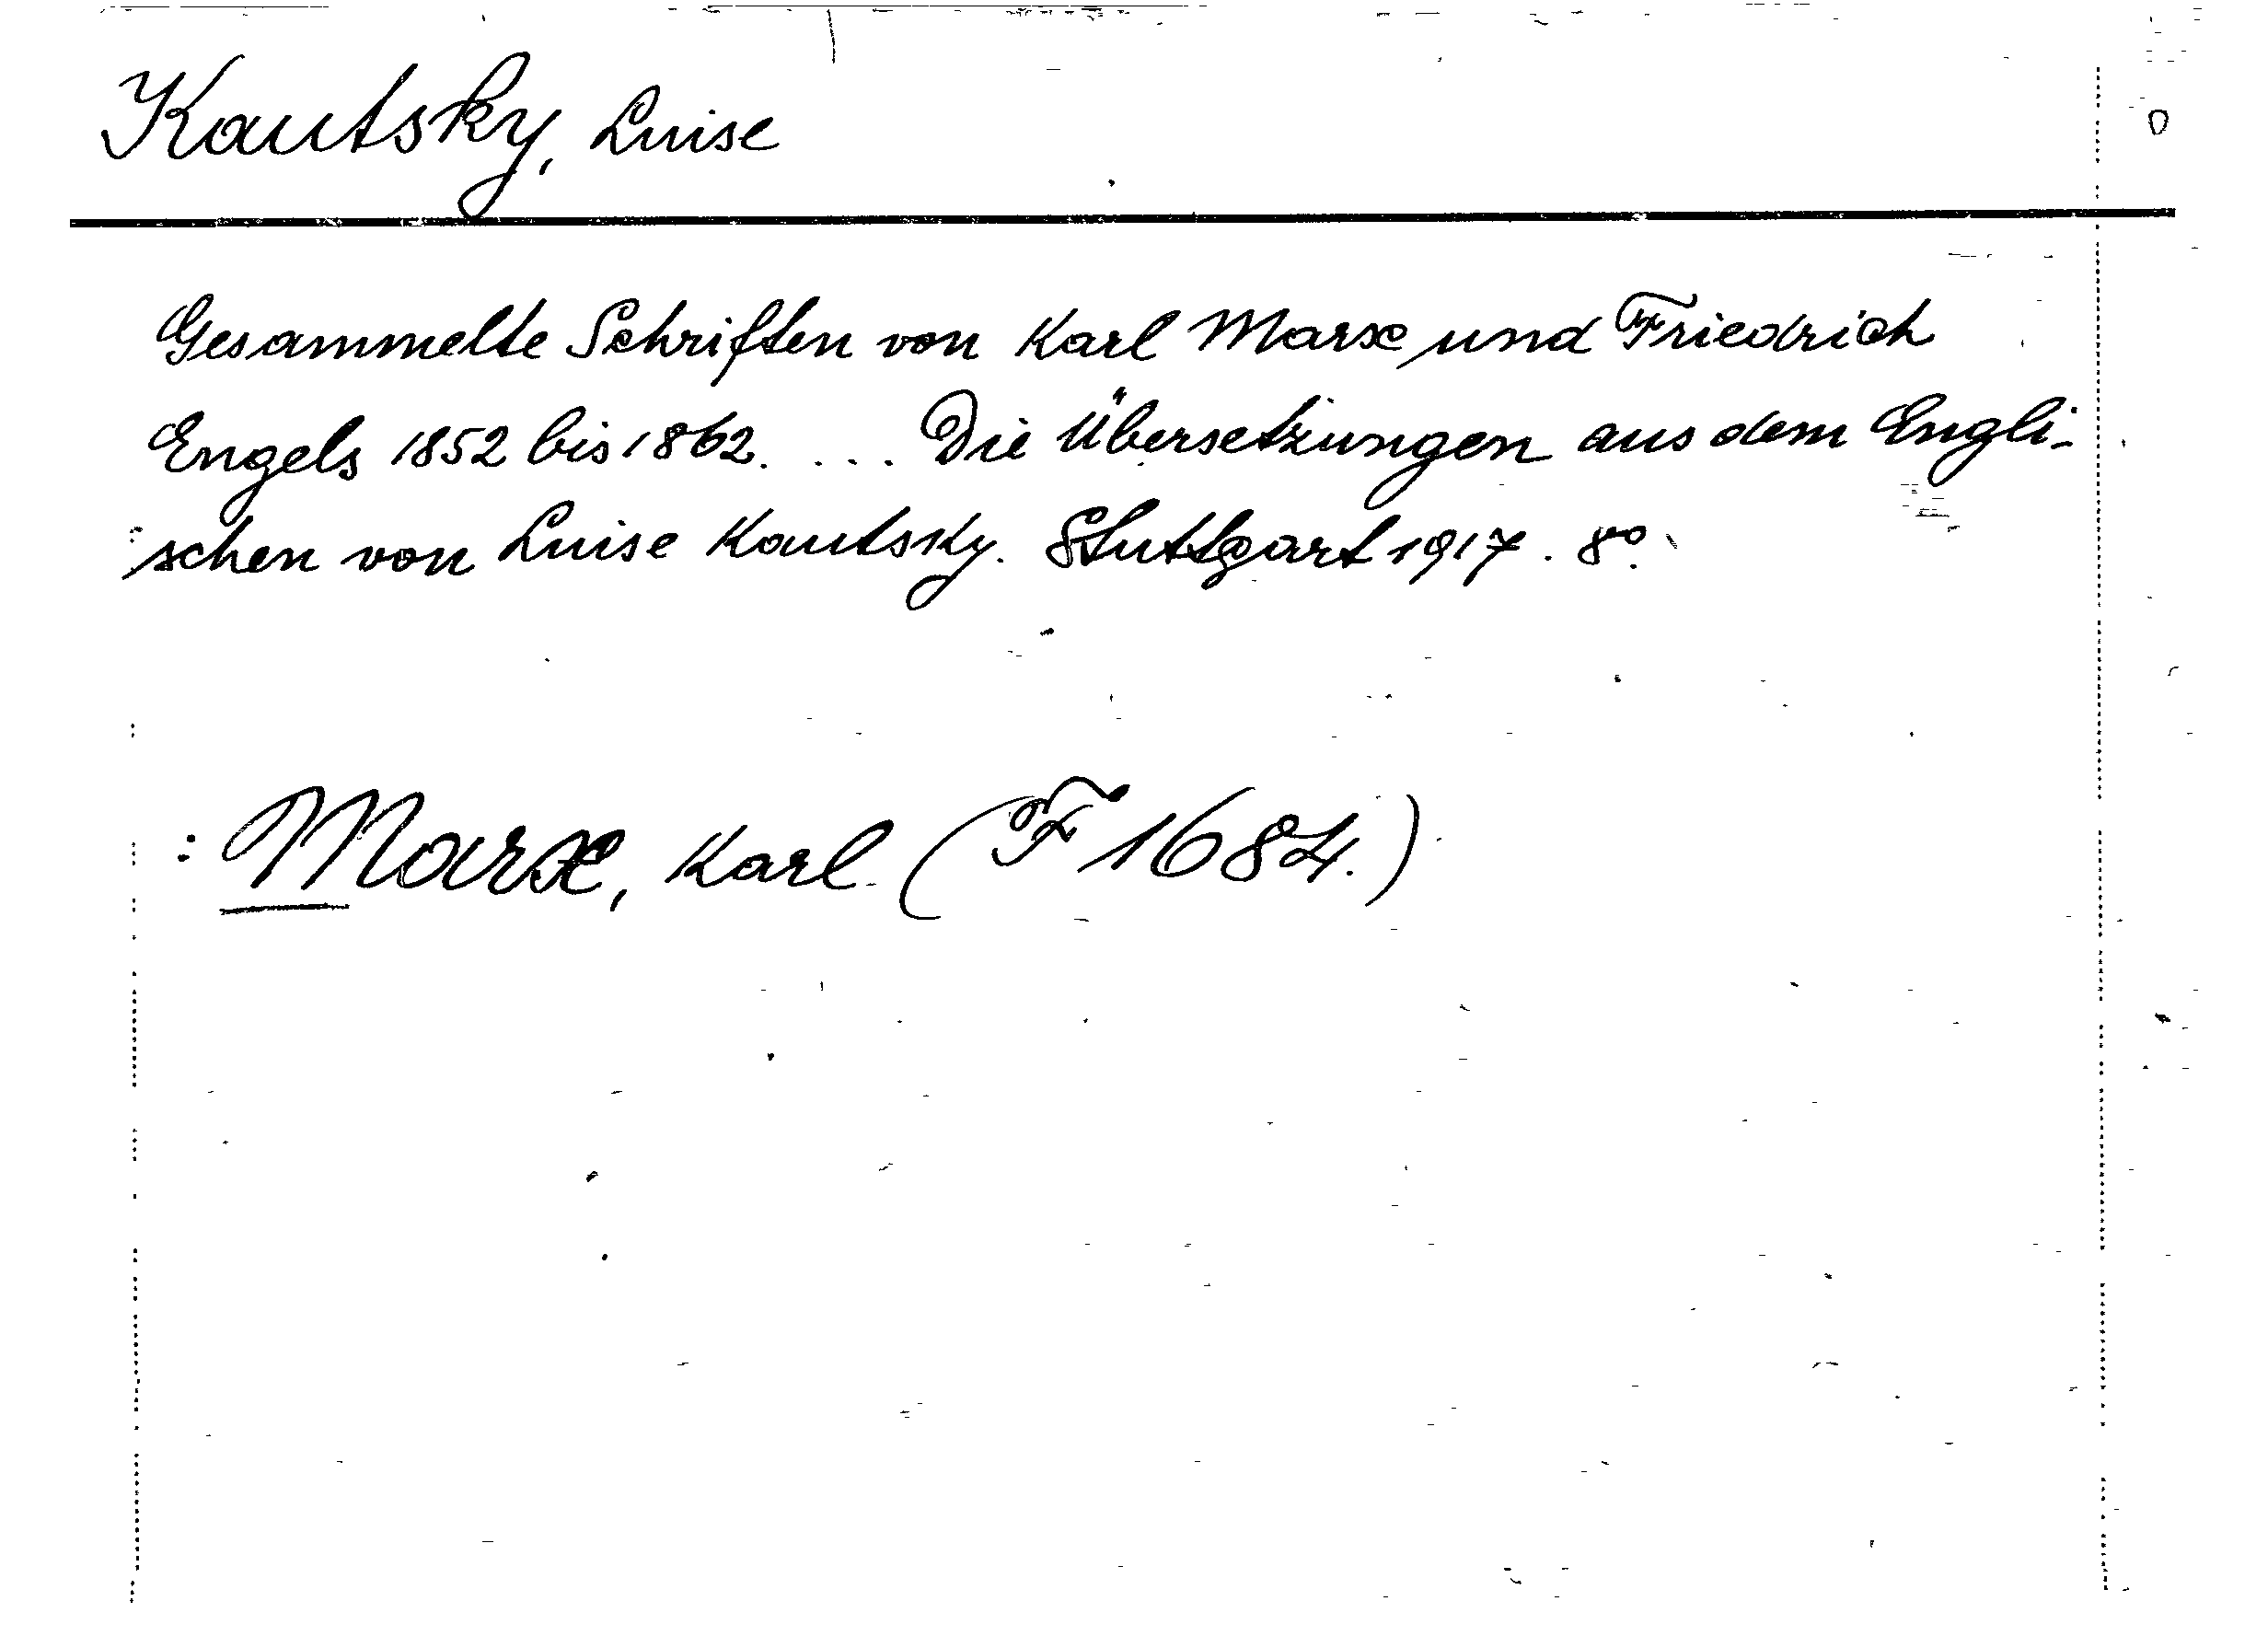 Kautsky, Luise
Gesammelte Schriften von Karl Marx und Friedrich
Engels 1852 bis 1862. ... Die Übersetzungen aus dem Engli-
schen von Luise Kautsky. Stuttgart 1917. 8°.
: Marx, Karl (F 1684.)